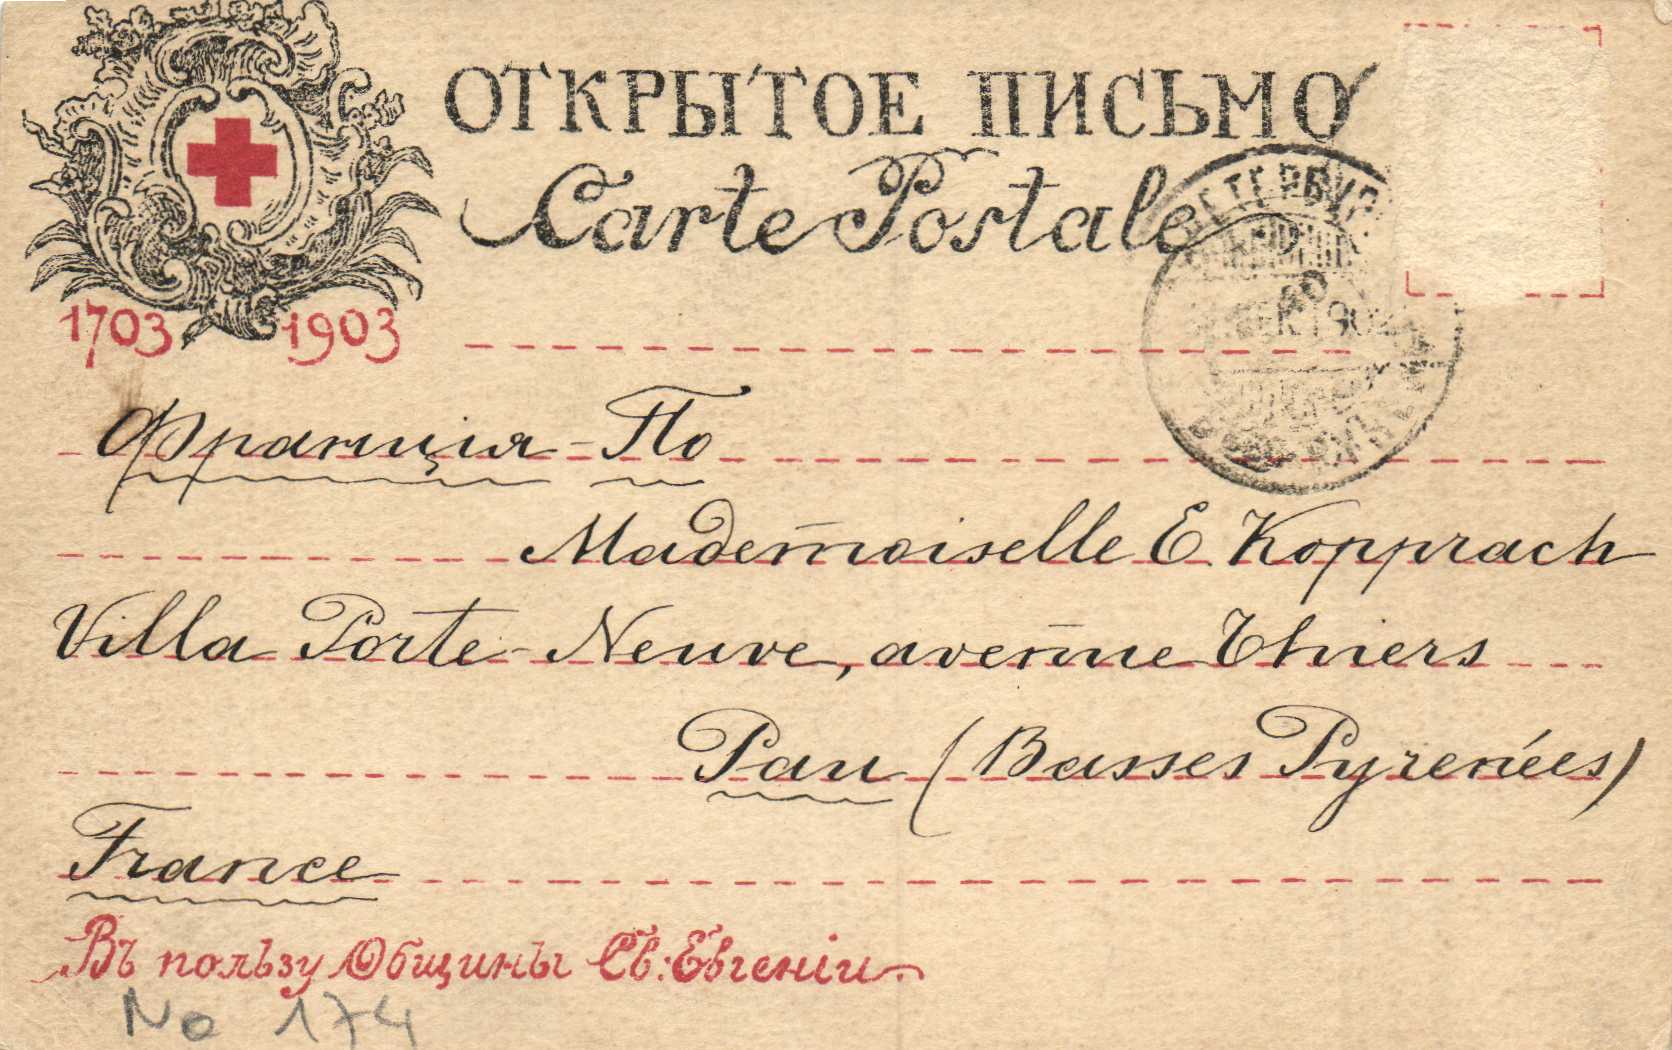 ОТКРЫТОЕ ПИСЬМО
Carte Postale
1703 1903
Франція - По
Mademoiselle E. Kopprach
Villa Porte-Neuve, avenue Thiers
Pau (Basses Pyrenées)
France
Въ пользу Общины Св. Евгеніи.
No 174